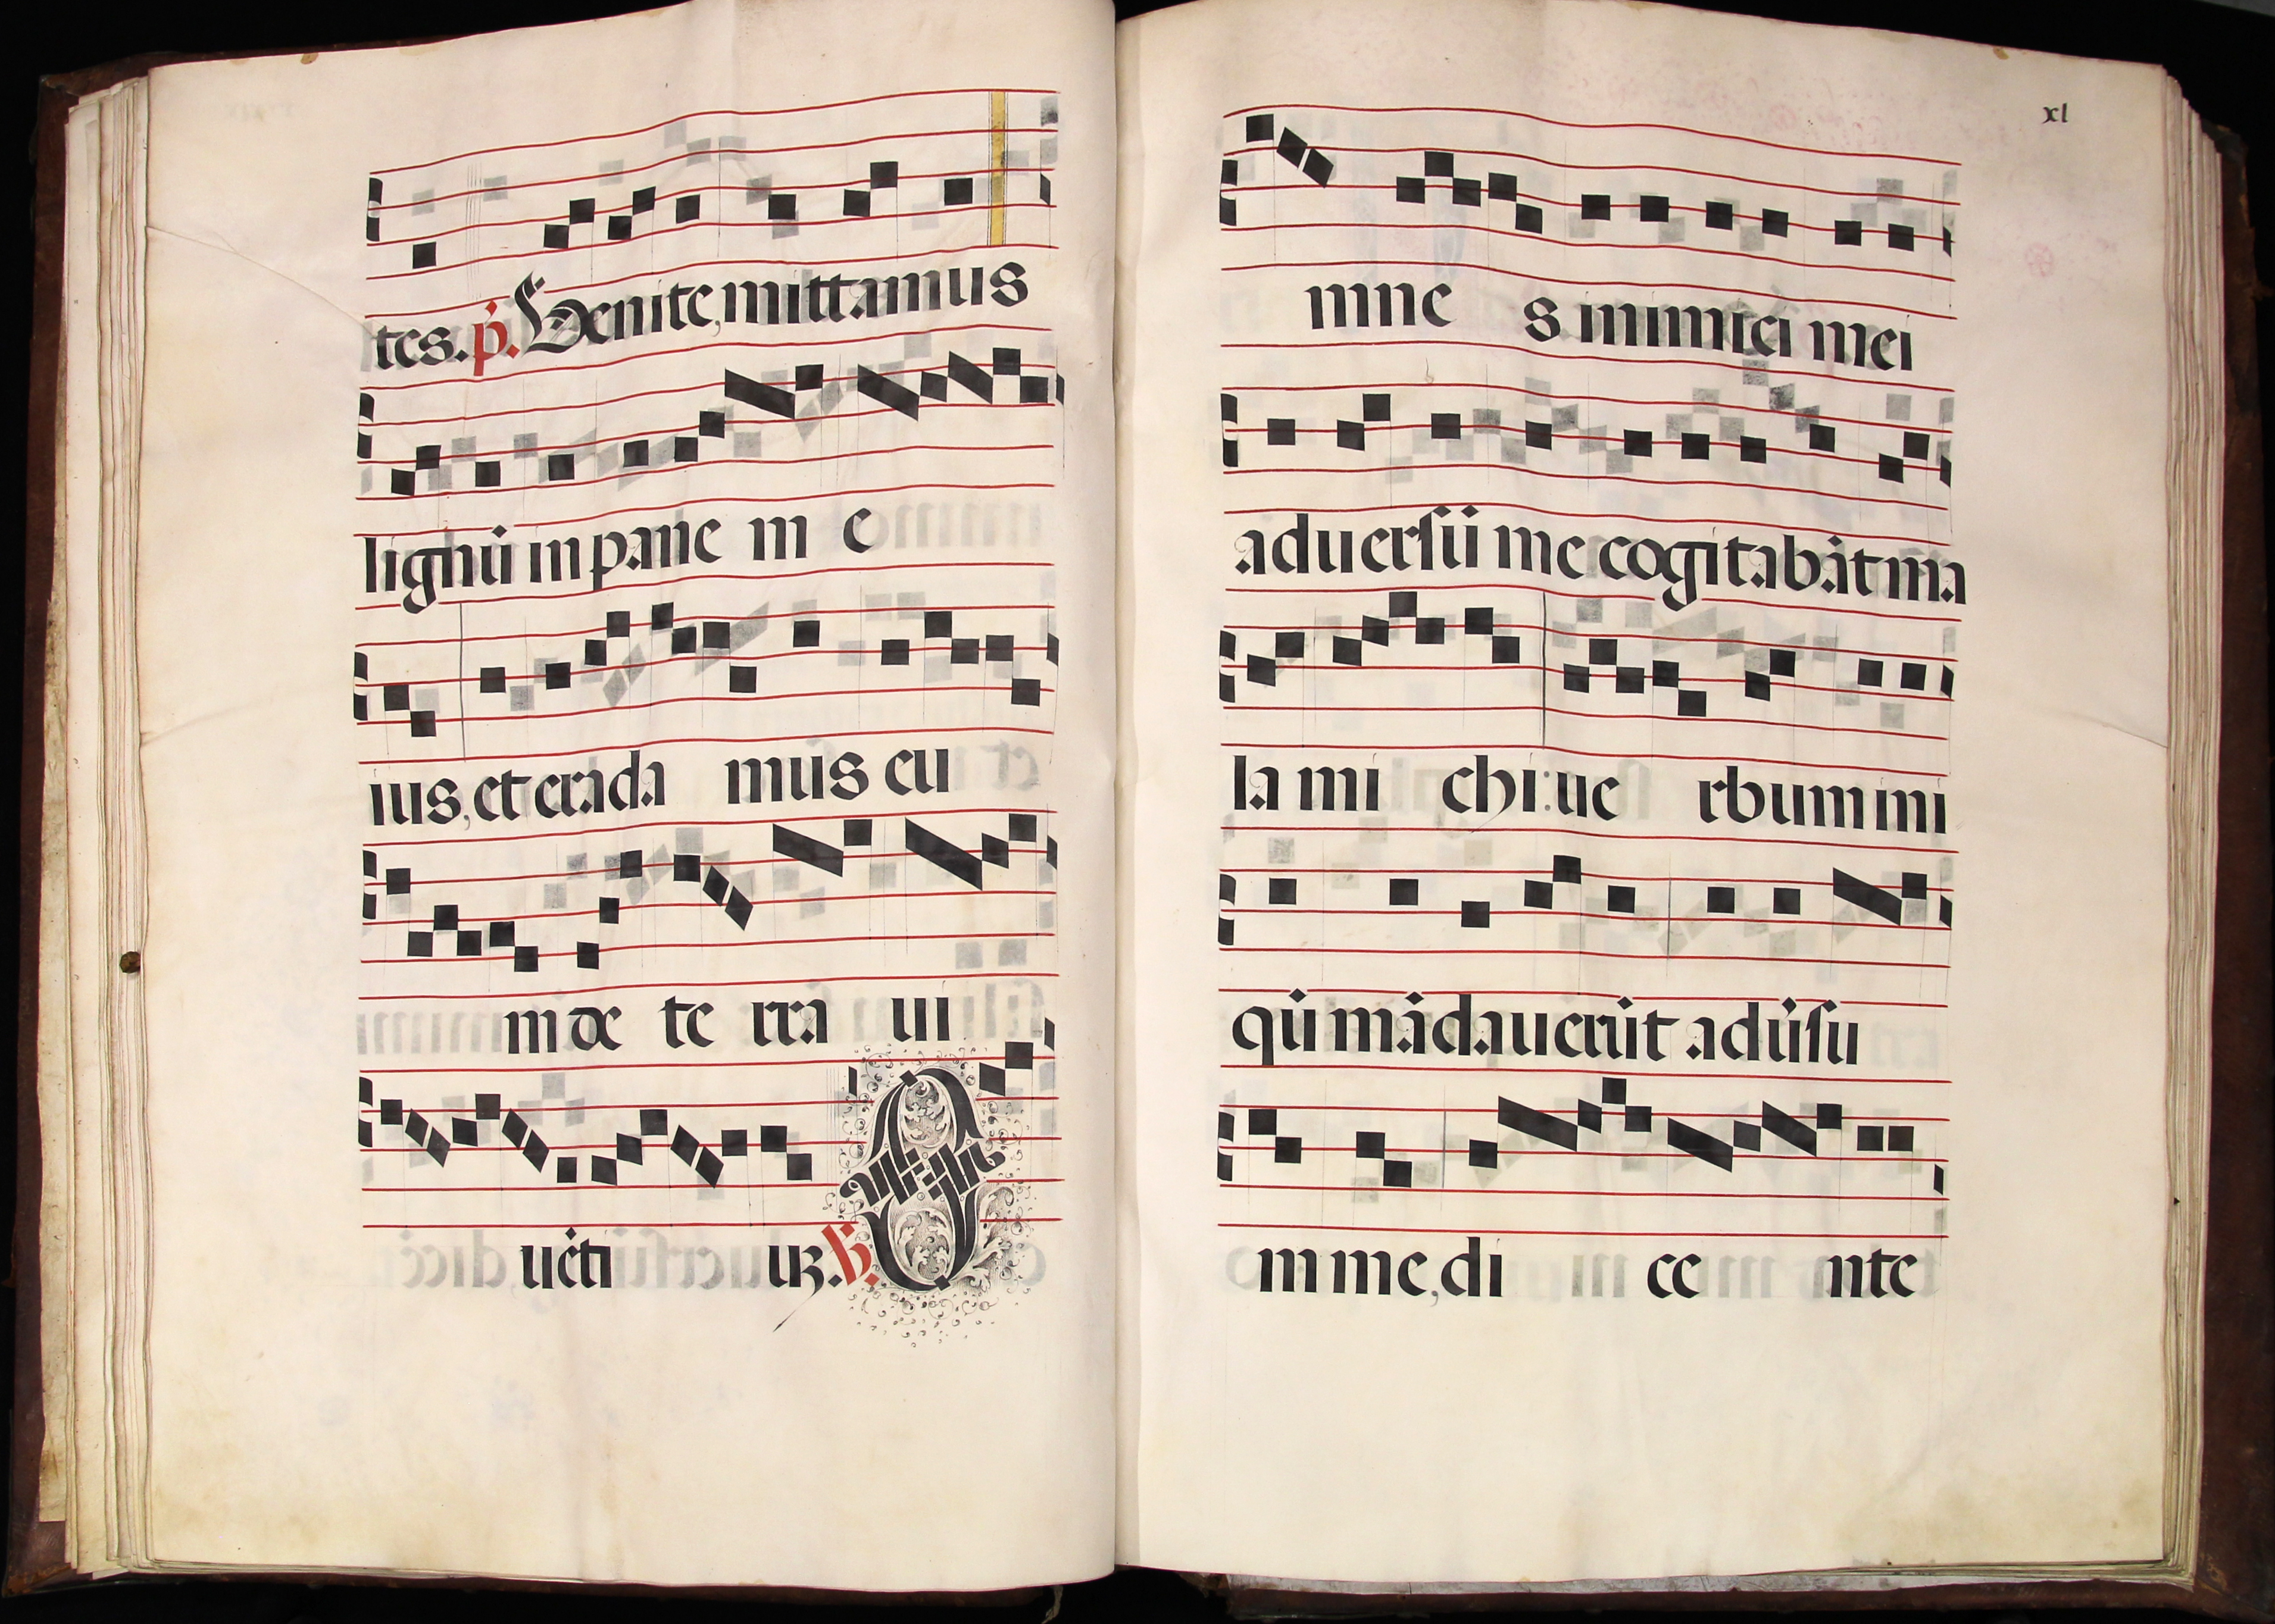 tes. p̃. Venite, mittamus
lignũ in pane m e
ius, et erada mus eu
m de te rra ui
uẽti uꝫ. ℟. O
xl
mne s inimici mei
aduersũ me cogitabãt ma
la mi chi: ue rbum ini
qũ mãdauerũt adũsu
m me, di ce nte